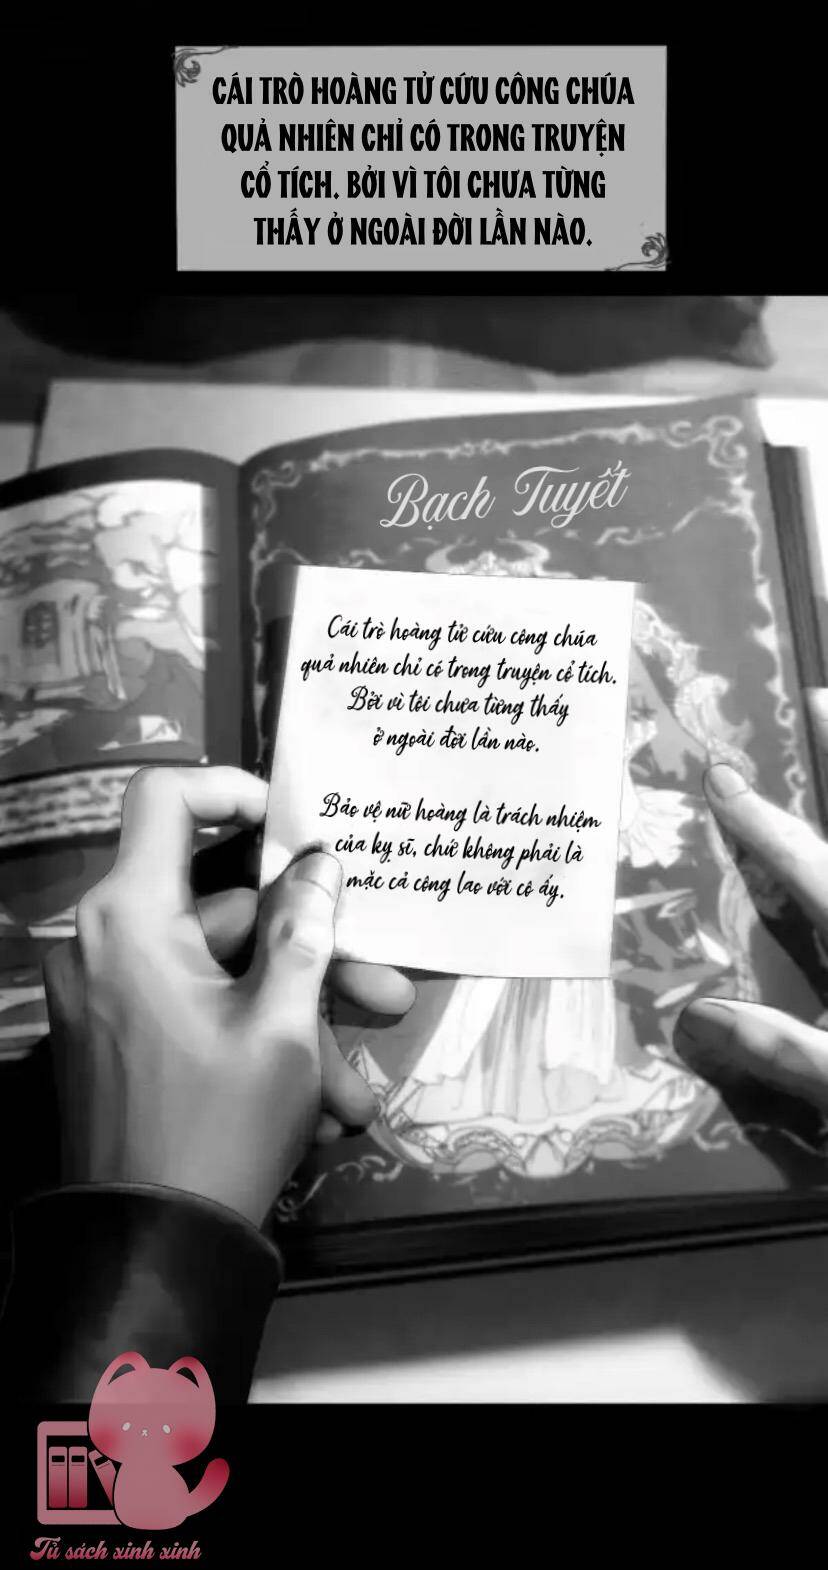 CÁI TRÒ HOÀNG TỬ CỨU CÔNG CHÚA
QUẢ NHIÊN CHỈ CÓ TRONG TRUYỆN
CỔ TÍCH. BỞI VÌ TÔI CHƯA TỪNG
THẤY Ở NGOÀI ĐỜI LẦN NÀO.
Bạch Tuyết
Cái trò hoàng tử cứu công chúa
quả nhiên chỉ có trong truyện cổ tích.
Bởi vì tôi chưa từng thấy
ở ngoài đời lần nào.
Bảo vệ nữ hoàng là trách nhiệm
của kỵ sĩ, chứ không phải là
mặc cả công lao với cô ấy.
Tủ sách xinh xinh